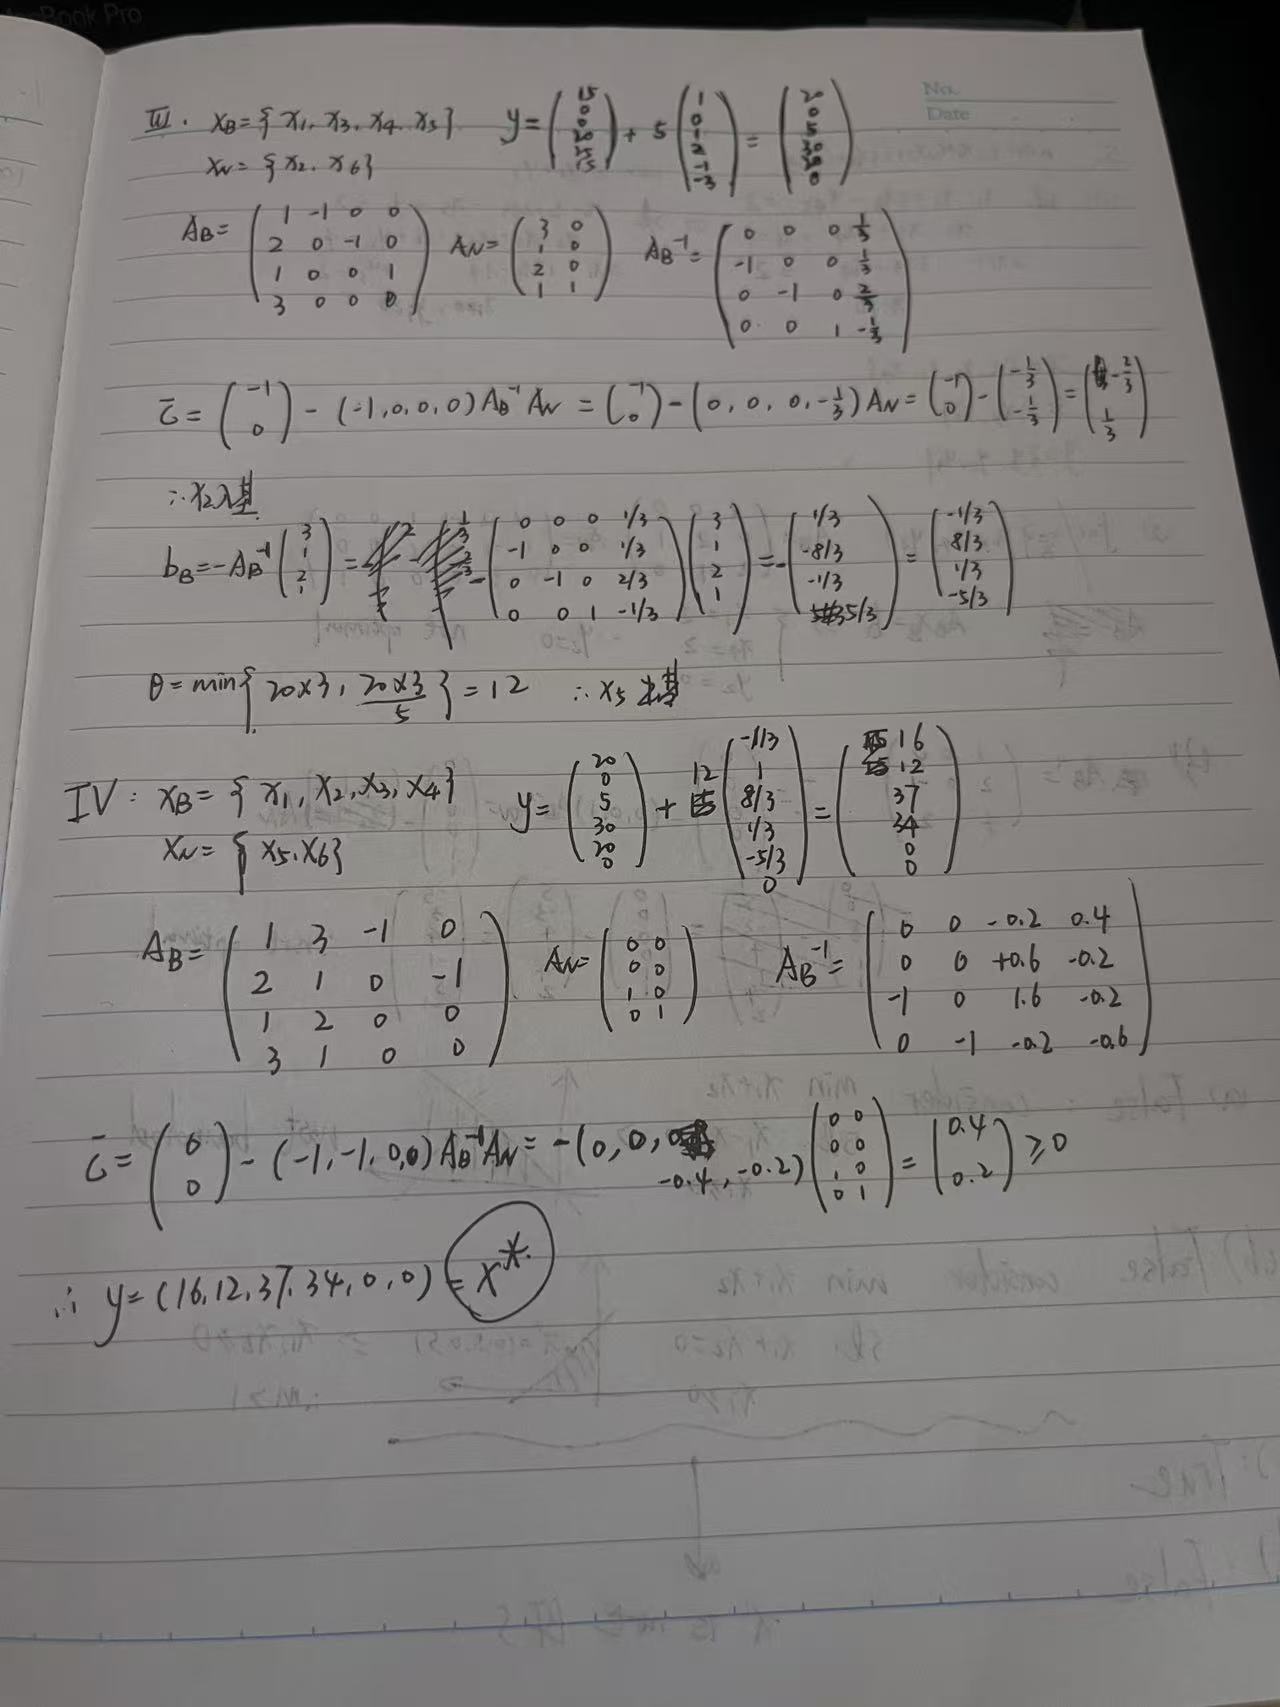 MacBook Pro
No.
Date
III. x_B = { x1, x3, x4, x5 }  y = (15, 0, 0, 20, 25, 15) + 5 (1, 0, 1, 2, -1, -3) = (20, 0, 5, 30, 20, 0)
x_N = { x2, x6 }
A_B = (1 -1 0 0; 2 0 -1 0; 1 0 0 1; 3 0 0 0)  A_N = (3 0; 1 0; 2 0; 1 1)  A_B^-1 = (0 0 0 1/3; -1 0 0 1/3; 0 -1 0 2/3; 0 0 1 -1/3)
c̄ = (-1; 0) - (-1, 0, 0, 0) A_B^-1 A_N = (-1; 0) - (0, 0, 0, -1/3) A_N = (-1; 0) - (-1/3; -1/3) = (-2/3; 1/3)
∴ x2入基
b_B = -A_B^-1 (3; 1; 2; 1) = - (0 0 0 1/3; -1 0 0 1/3; 0 -1 0 2/3; 0 0 1 -1/3) (3; 1; 2; 1) = - (1/3; -8/3; -1/3; 5/3) = (-1/3; 8/3; 1/3; -5/3)
θ = min { 20×3, 20×3/5 } = 12  ∴ x5 出基
IV: x_B = { x1, x2, x3, x4 }  y = (20; 0; 5; 30; 20; 0) + 12 (-1/3; 1; 8/3; 1/3; -5/3; 0) = (16; 12; 37; 34; 0; 0)
x_N = { x5, x6 }
A_B = (1 3 -1 0; 2 1 0 -1; 1 2 0 0; 3 1 0 0)  A_N = (0 0; 0 0; 1 0; 0 1)  A_B^-1 = (0 0 -0.2 0.4; 0 0 +0.6 -0.2; -1 0 1.6 -0.2; 0 -1 -0.2 -0.6)
c̄ = (0; 0) - (-1, -1, 0, 0) A_B^-1 A_N = - (0, 0, -0.4, -0.2) (0 0; 0 0; 1 0; 0 1) = (0.4; 0.2) ≥ 0
∴ y = (16, 12, 37, 34, 0, 0) = x*.